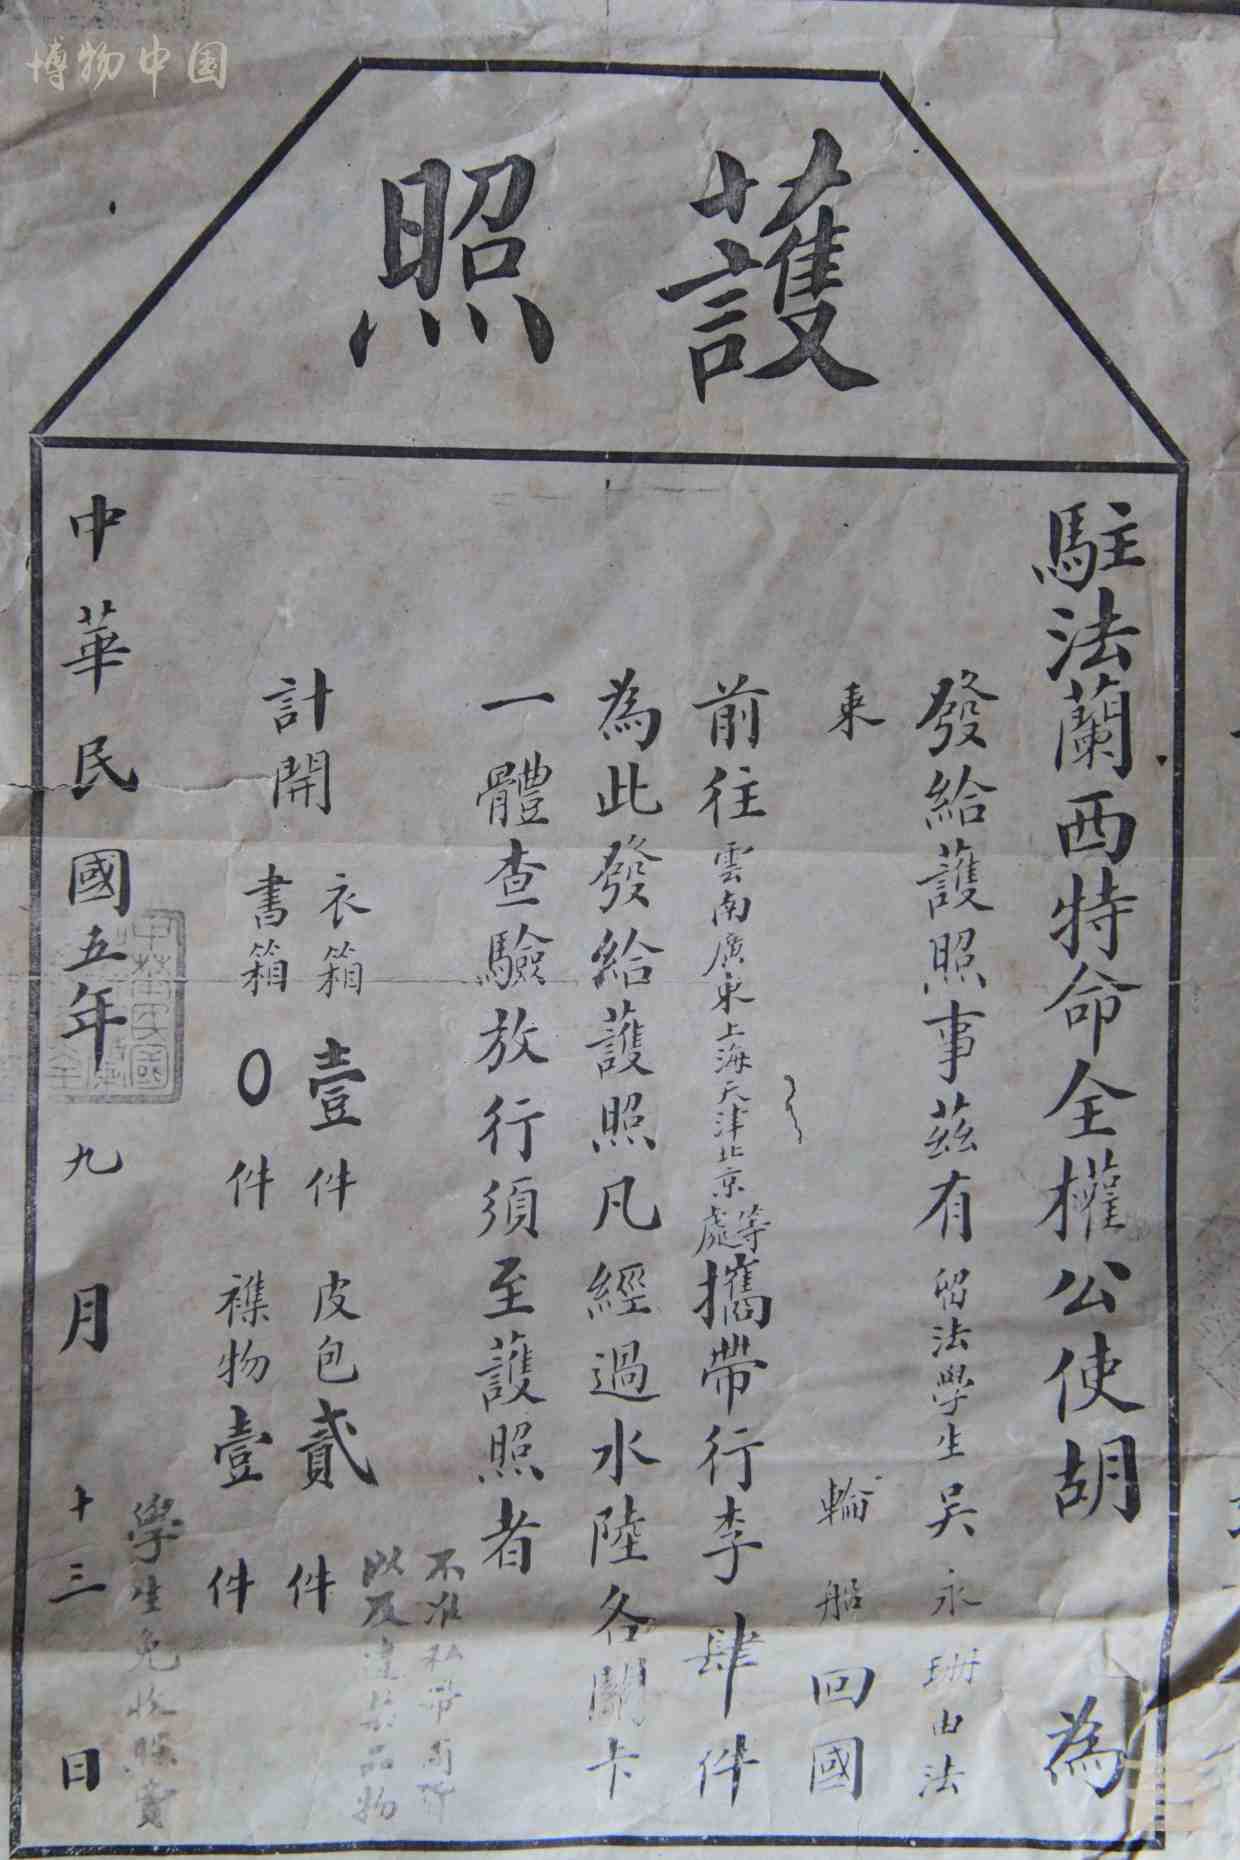 博物中国
護照
駐法蘭西特命全權公使胡 為
發給護照事茲有留法學生吳永珊由法
乘 輪船回國
前往雲南廣東上海天津北京等處攜帶行李肆件
為此發給護照凡經過水陸各關卡
一體查驗放行須至護照者
不准私帶
以及違禁品物
計開
衣箱壹件 皮包貳件
書箱0件 襍物壹件
學生免收照費
中華民國五年九月十三日